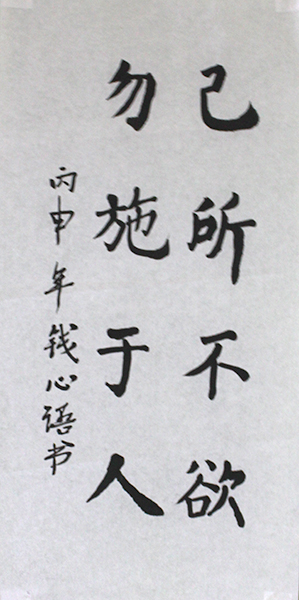 己所不欲
勿施于人
丙申年钱心语书